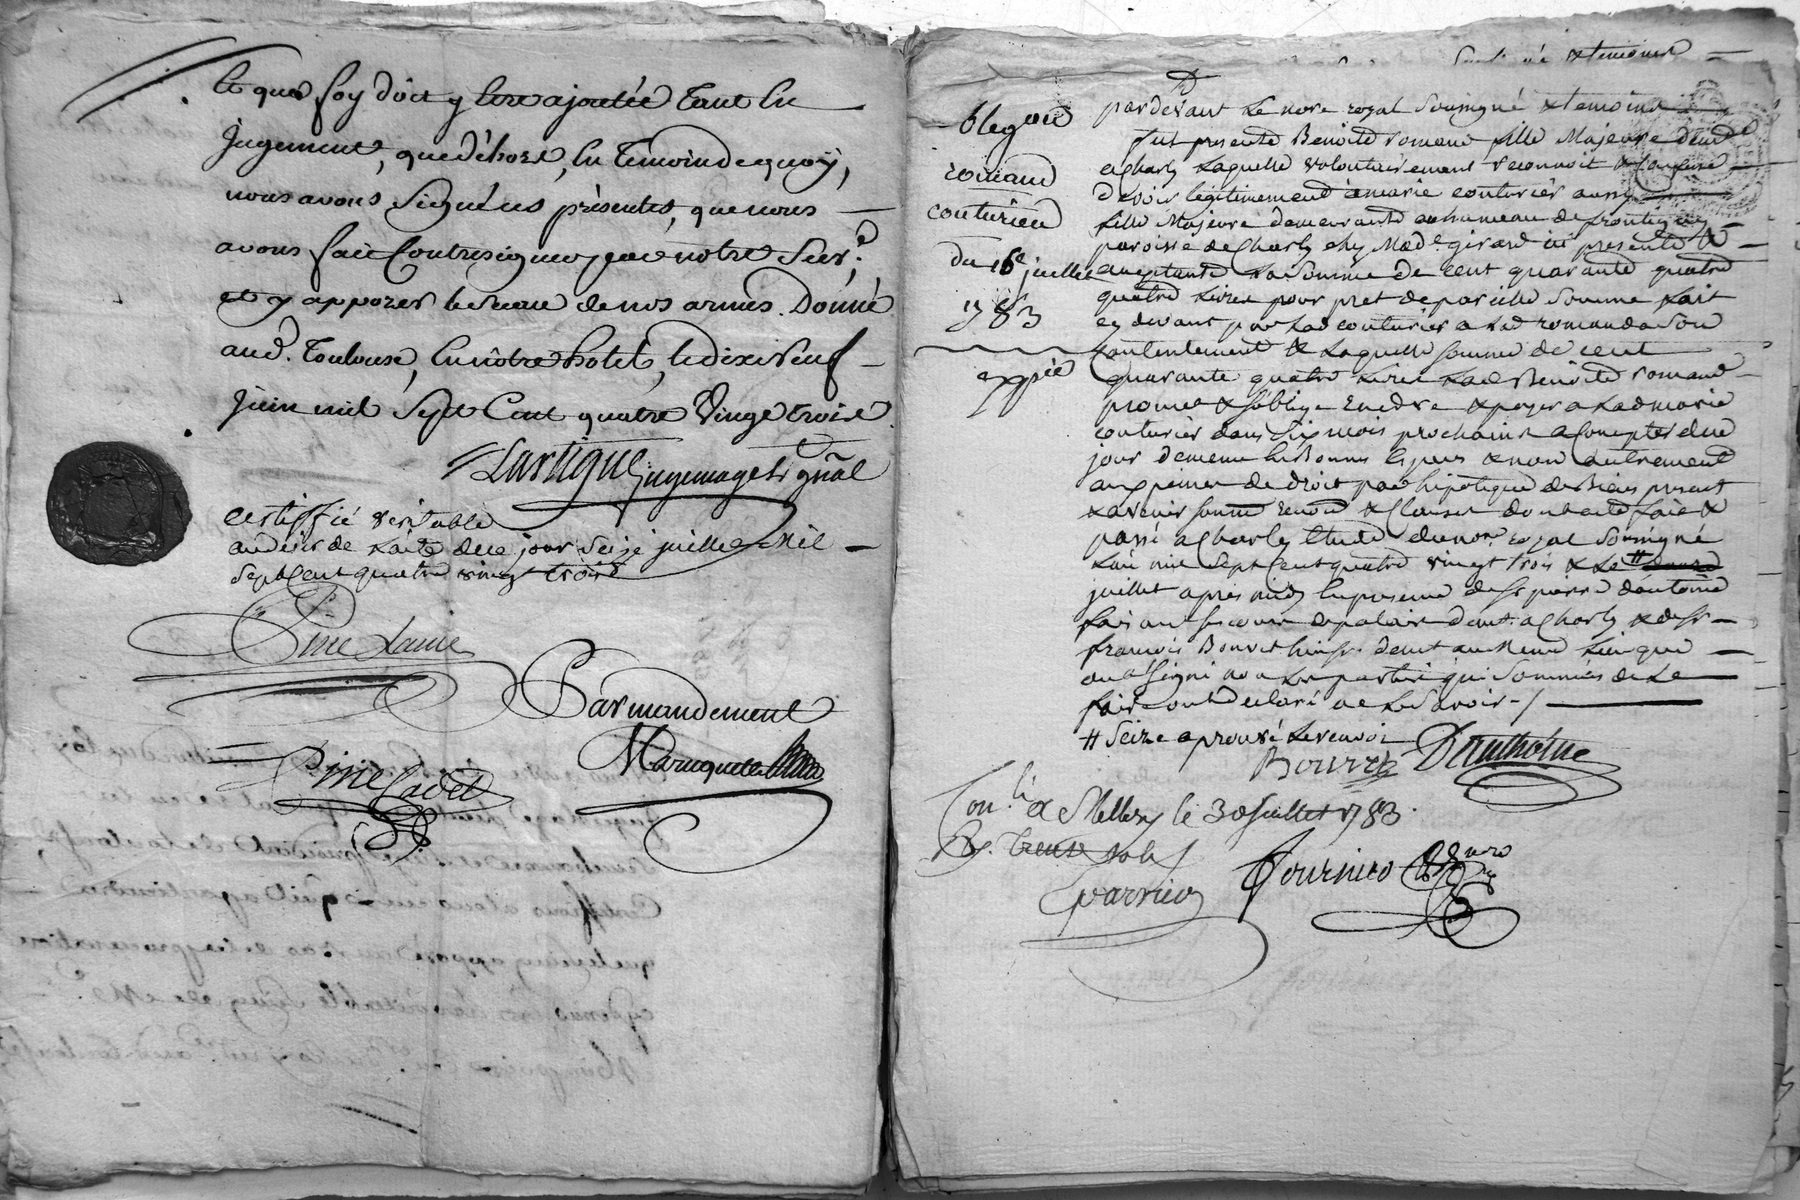 et que foy doit y être ajoutée tant en
jugement, que déhors, en temoin de quoy,
nous avons signé ces présentes, que nous
avons fait contresigner par notre Secr.re
et y apposer le sceau de nos armes. Donné
aud. Toulouse, en nôtre hôtel, le dix neuf
juin mil sept cent quatre vingt trois.
Lartigue juge mage Lt gnâl
certiffié veritable
au desir de l'acte de ce jour seize juillet mil
sept cent quatre vingt trois
Pine Laine
Parmandement
Pine Cadet
obligaõn
romand
couturier
du 16e juillet
1783
expiée
pardevant le nore royal soussigné & temoins
fut presente Benoite romand fille Majeure demt
a Charly laquelle volontairement reconnoit & confesse
devoir légitimement à marie couturier aussy
fille Majeure demeurante au hameau de
paroisse de Charly chez Mad.e girard ici presente &
acceptante la somme de cent quarante quatre
quatre livres pour pret de pareille somme fait
cy devant par lad couturier a lad romand a son
contentement & laquelle somme de cent
quarante quatre livres lad Benoite romand
promet & s'oblige rendre & payer a lad marie
couturier dans six mois prochains a compter de ce
jour d'ememe en Bonnes especes & non autrement
aux peines de droit par hipoteque de Biens present
& avenir soumon renon & Clauses dont acte fait &
passé a Charly etude du nore royal soussigné
l'an mil sept cent quatre vingt trois & le #
juillet après midy en presence de sr pierre dantoine
demt a Charly & de sr
françois Bouvet demt au meme lieu qui
ont signé non les parties qui sommées de le
faire ont declaré ne le savoir ./.
# seize aprouvé le renvoi
Bouvet Danthoine
Con.lé a le 30 Juillet 1783.
R. trente sols
Fournier